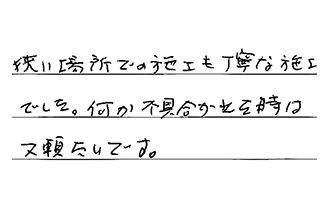 狭い場所での施工も丁寧な施工
でした。何か不具合が出た時は
又頼たいです。